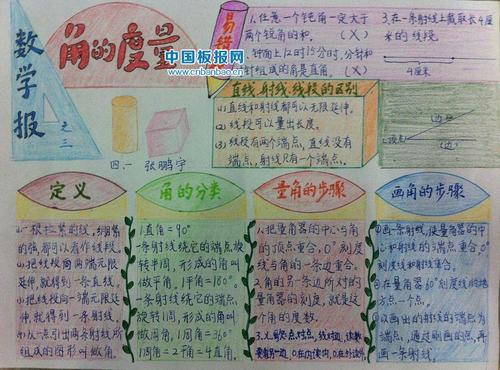 数学报
之三
角的度量
中国板报网
www.cnbanbao.cn
四.一 张鹏宇
易错
1.任意一个锐角一定大于
两个锐角的和。 (X)
钟面上12时15分,分针和
时针组成的角是直角。(X)
3.在一条射线上截取长4厘
米的线段。
4厘米
直线、射线、线段的区别
(1)直线和射线都可以无限延伸。
(2)线段可以量出长度。
(3)线段有两个端点,直线没有
端点,射线只有一个端点。
顶点
(边)
(边)
定义
(1)一根拉紧的线,绷紧
的弦,都可以看作线段。
(2)把线段向两端无限延
伸,就得到一条直线。
(3)把线段向一端无限延
伸,就得到一条射线。
(4)从一点引出两条射线所
组成的图形叫做角。
角的分类
1直角=90°
一条射线绕它的端点旋
转半周,形成的角叫
做平角,1平角=180°。
一条射线绕它的端点,
旋转1周,形成的角叫
做周角,1周角=360°
1周角=2平角=4直角。
量角的步骤
1.把量角器的中心与角
的顶点重合,0°刻度
线与角的一条边重合。
2.角的另一条边所对的
量角器的刻度,就是这
个角的度数。
画角的步骤
①画一条射线,使量角器的中
心和射线的端点重合,0°
刻度线和射线重合。
②在量角器60°刻度线的地
方点一个点。
③以画出的射线的端点为
端点,通过刚画的点,再
画一条射线。